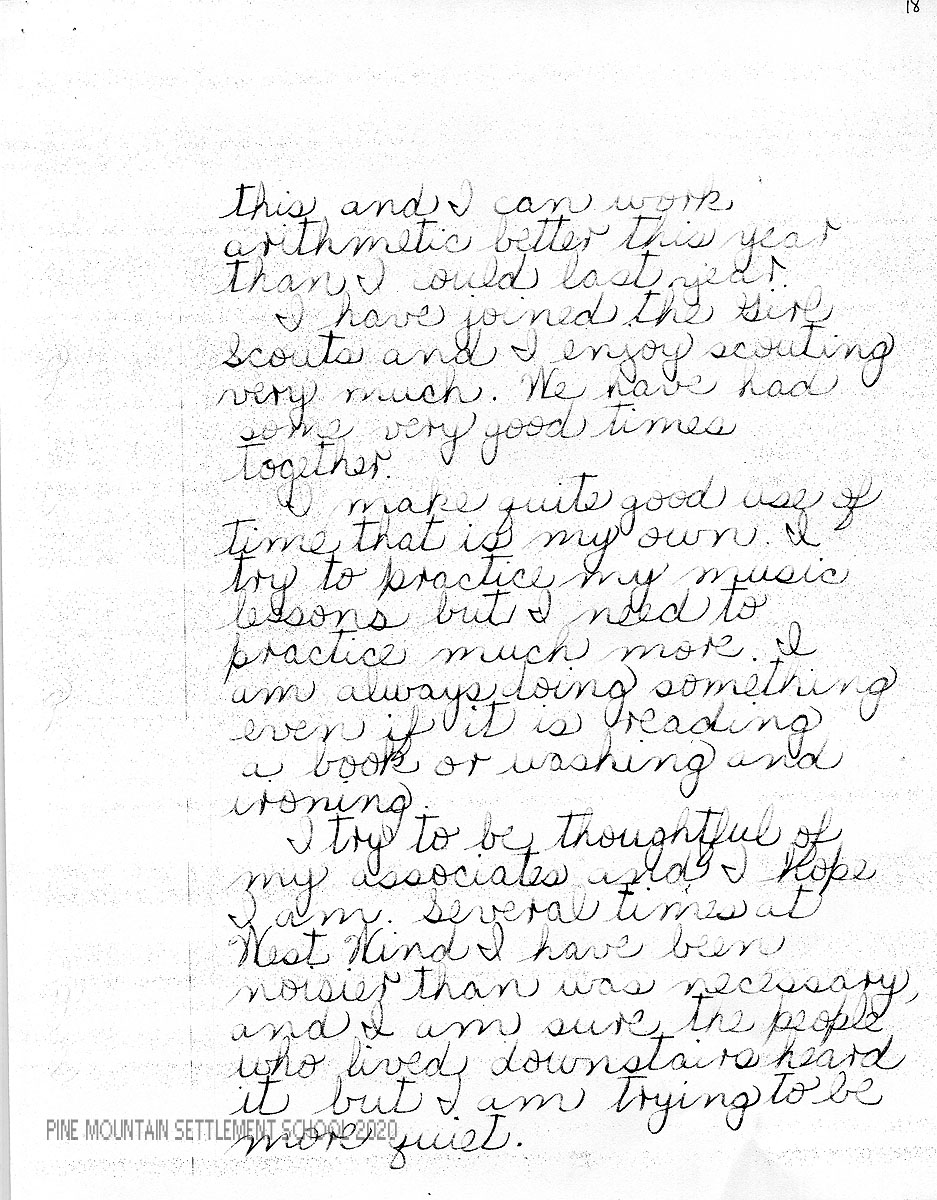 18
this and I can work
arithmetic better this year
than I could last year.
I have joined the Girl
Scouts and I enjoy scouting
very much. We have had
some very good times
together.
I make quite good use of
time that is my own. I
try to practice my music
lessons but I need to
practice much more. I
am always doing something
even if it is reading
a book or washing and
ironing.
I try to be thoughtful of
my associates and I hope
I am. Several times at
West Wind I have been
noisier than was necessary,
and I am sure the people
who lived downstairs heard
it but I am trying to be
more quiet.
PINE MOUNTAIN SETTLEMENT SCHOOL 2020